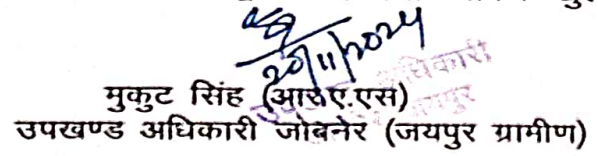 20/11/2024
मुकुट सिंह (आर.ए.एस)
उपखण्ड अधिकारी जोबनेर (जयपुर ग्रामीण)